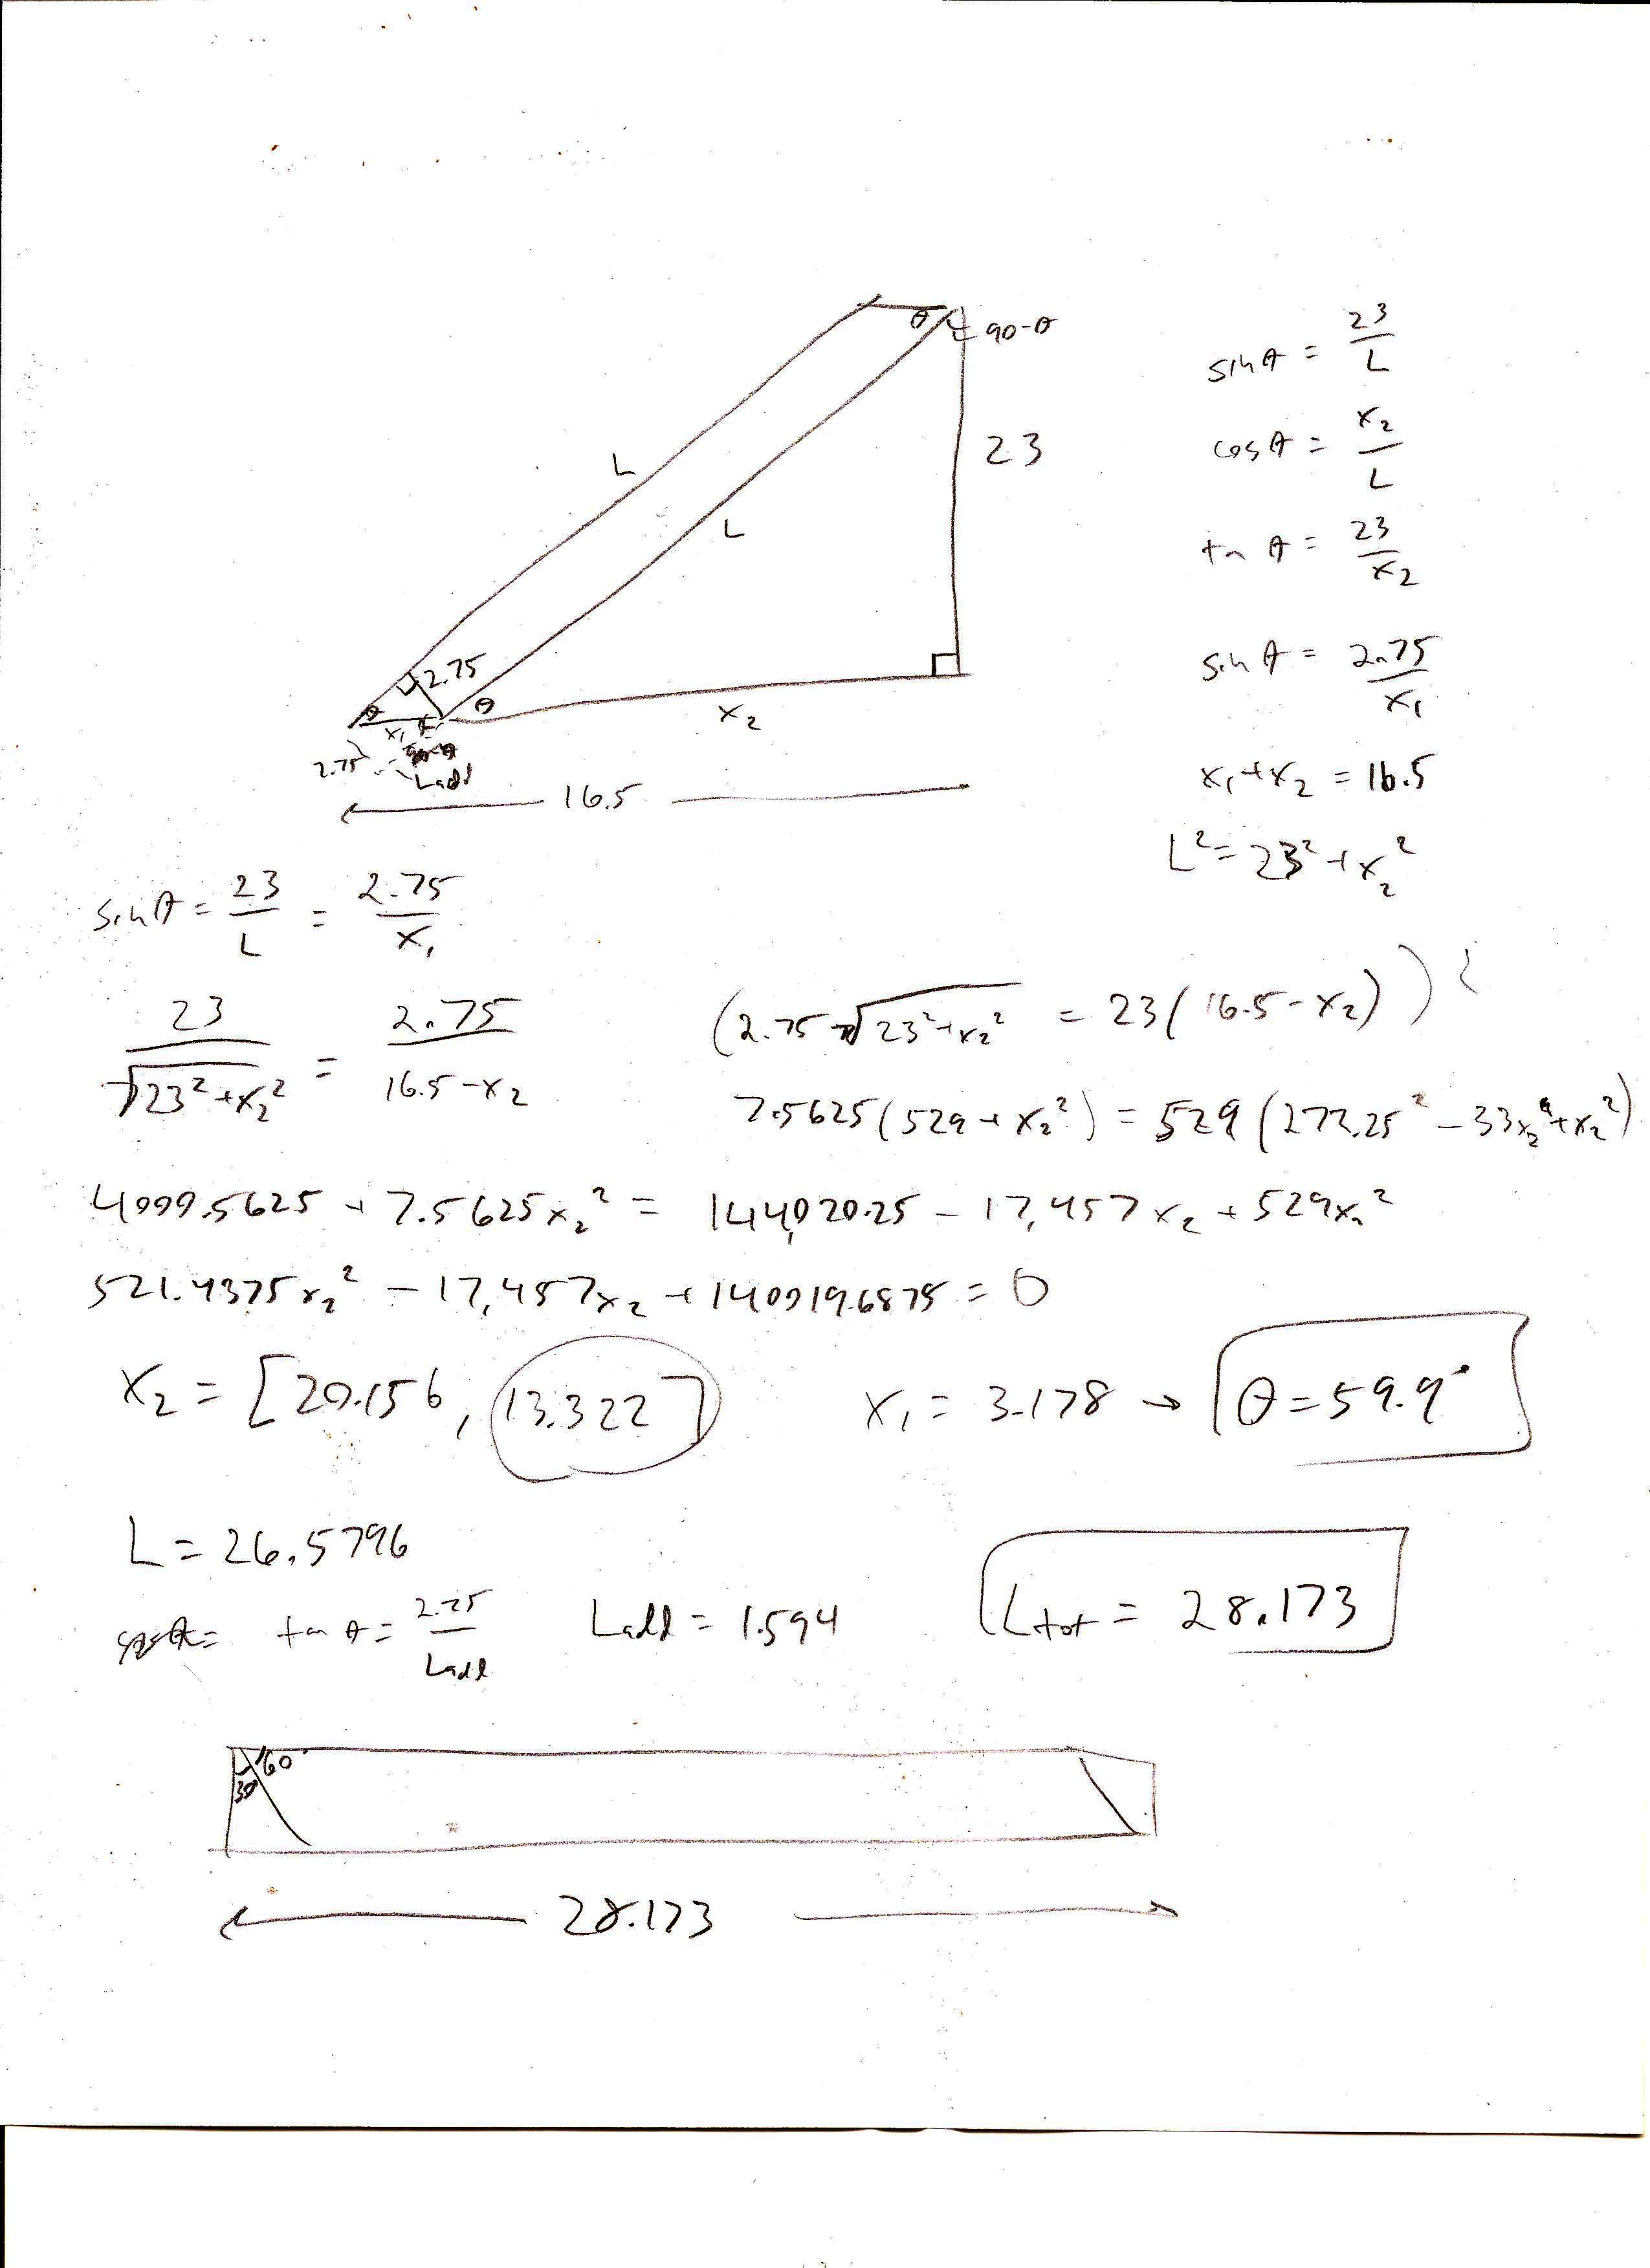 θ
90-θ
sin θ = 23/L
23
cos θ = x₂/L
L
L
tan θ = 23/x₂
2.75
sin θ = 2.75/x₁
θ
θ
x₁
x₂
2.75
Ladd
16.5
x₁+x₂ = 16.5
L² = 23² + x₂²
sin θ = 23/L = 2.75/x₁
23/√(23²+x₂²) = 2.75/(16.5-x₂)
(2.75√(23²+x₂²) = 23(16.5-x₂))²
7.5625(529+x₂²) = 529(272.25² - 33x₂+x₂²)
4000.5625 + 7.5625x₂² = 144,020.25 - 17,457x₂ + 529x₂²
521.4375x₂² - 17,457x₂ + 140019.6875 = 0
x₂ = [20.156, 13.322]
x₁ = 3.178 → θ = 59.9°
L = 26.5796
tan θ = 2.75/Ladd
Ladd = 1.594
Ltot = 28.173
60°
30
28.173